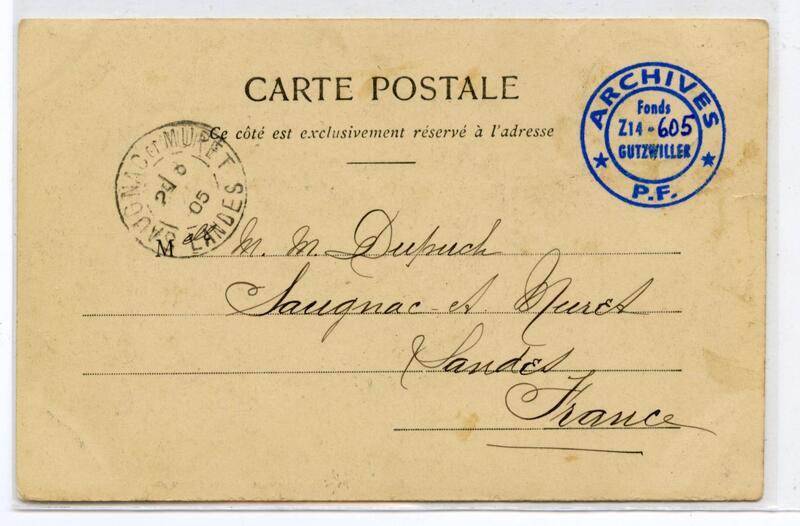 CARTE POSTALE
Ce côté est exclusivement réservé à l'adresse
ARCHIVES
Fonds
Z14-605
GUTZWILLER
P.F.
SAUGNAC ET MURET
05
LANDES
Melle M. M. Dupuch
Saugnac-et Muret
Landes
France